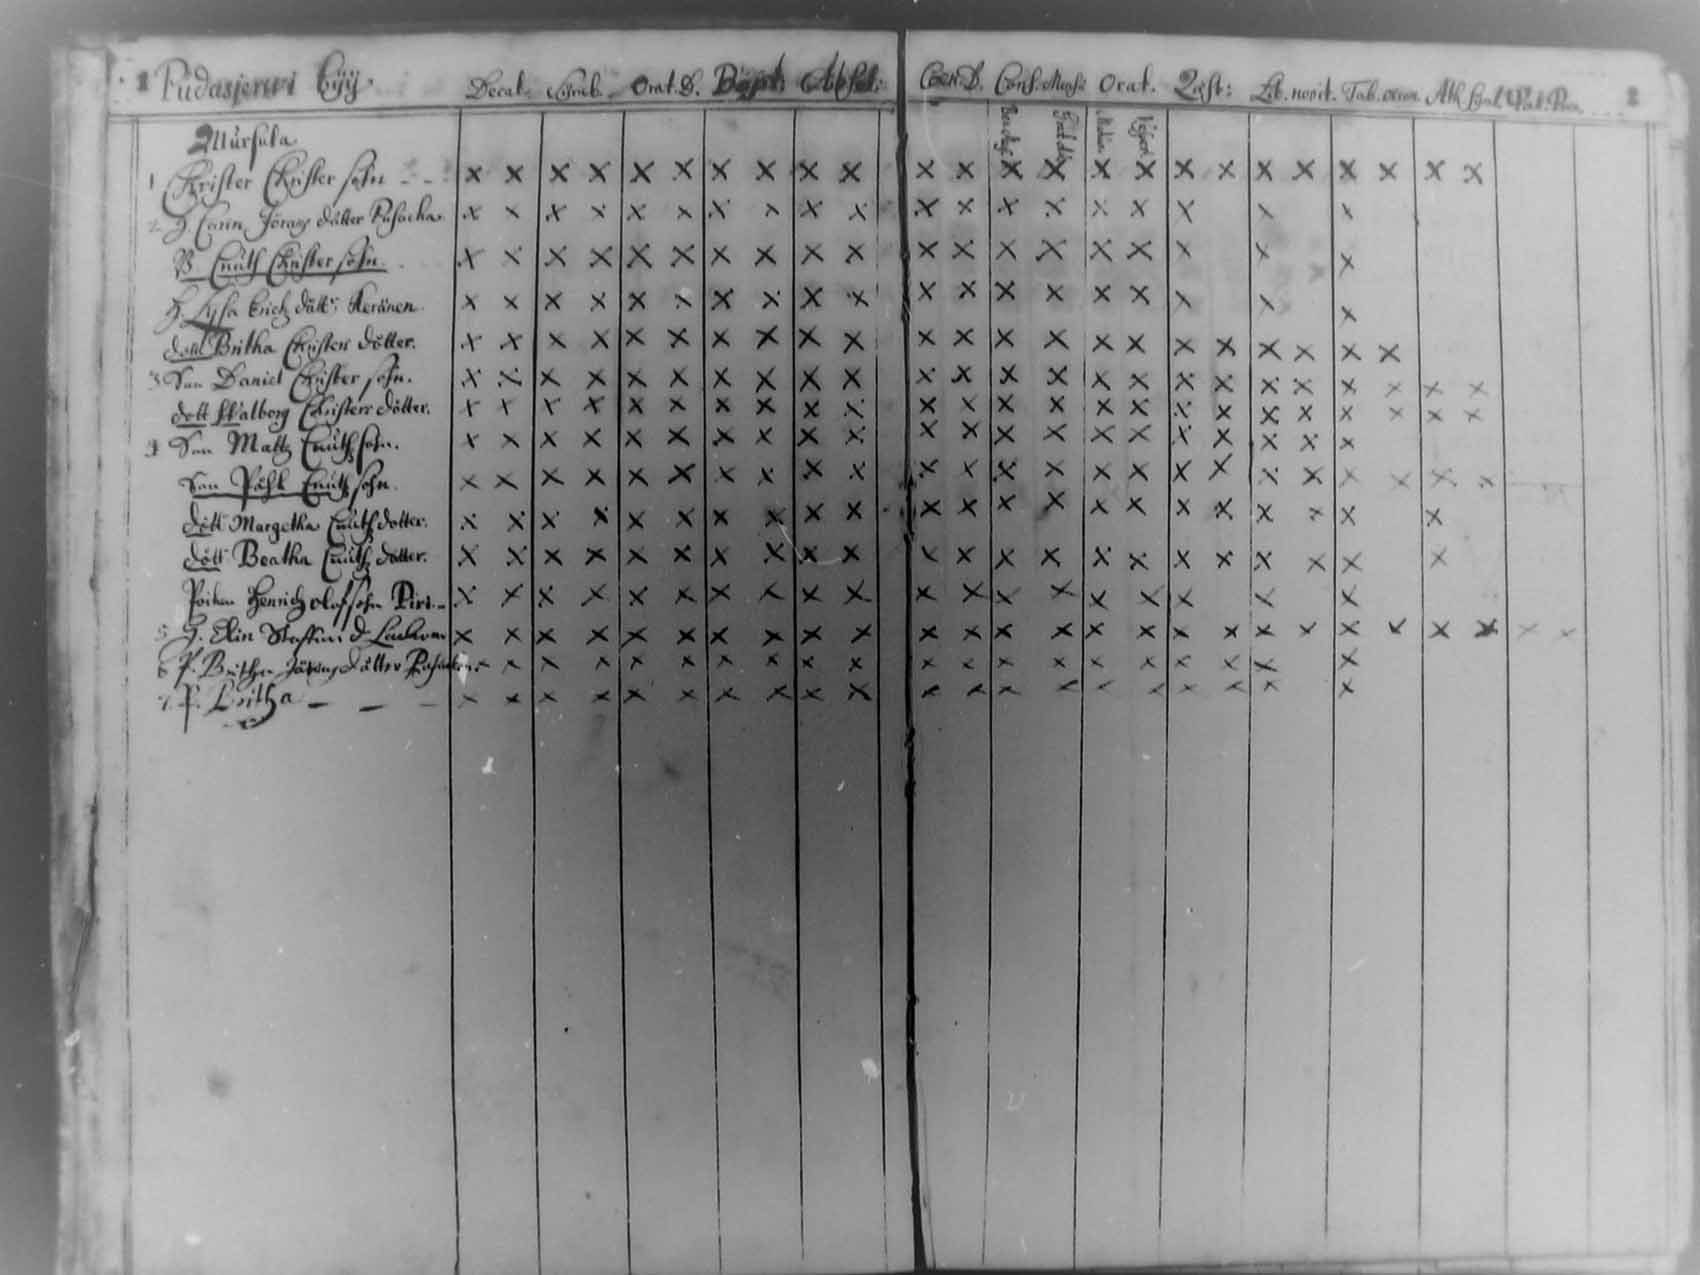 1 Pudasjerwi Bÿÿ. Decal. Symb. Orat. D. Bapt: Absol: Coen. D. Conf. Orat. Quæst: Lit. novit. Tab. oecon. Ath. 2
Mursula
1 Christer Christer sohn - - x x x x x x x x x x x x x x x x x x x x x x x x
2 H. Carin Jörans dätter x x x x x x x x x x x x x x x x x x x
B Cnuth Christer sohn. x x x x x x x x x x x x x x x x x x x
H. Lysa Erich dätt: Keränen. x x x x x x x x x x x x x x x x x x x
dott Britha Christers dötter. x x x x x x x x x x x x x x x x x x x x x x
3 Son Daniel Christer sohn. x x x x x x x x x x x x x x x x x x x x x x x x
dott Walborg Christers dötter. x x x x x x x x x x x x x x x x x x x x x x x x
4 Son Matts Cnuth sohn. x x x x x x x x x x x x x x x x x x x x x
Son Påhl Cnuth sohn. x x x x x x x x x x x x x x x x x x x x x x x x
dött Margetha Cnuths dotter. x x x x x x x x x x x x x x x x x x x x x x
dött Beatha Cnuths dotter. x x x x x x x x x x x x x x x x x x x x x x
Henrich olofsohn x x x x x x x x x x x x x x x x x x x
5 H. Elin Staffans d. x x x x x x x x x x x x x x x x x x x x x x x x x x
6 P. Britha Jörans dätter x x x x x x x x x x x x x x x x x x x x
7 P. Britha - - - x x x x x x x x x x x x x x x x x x x x